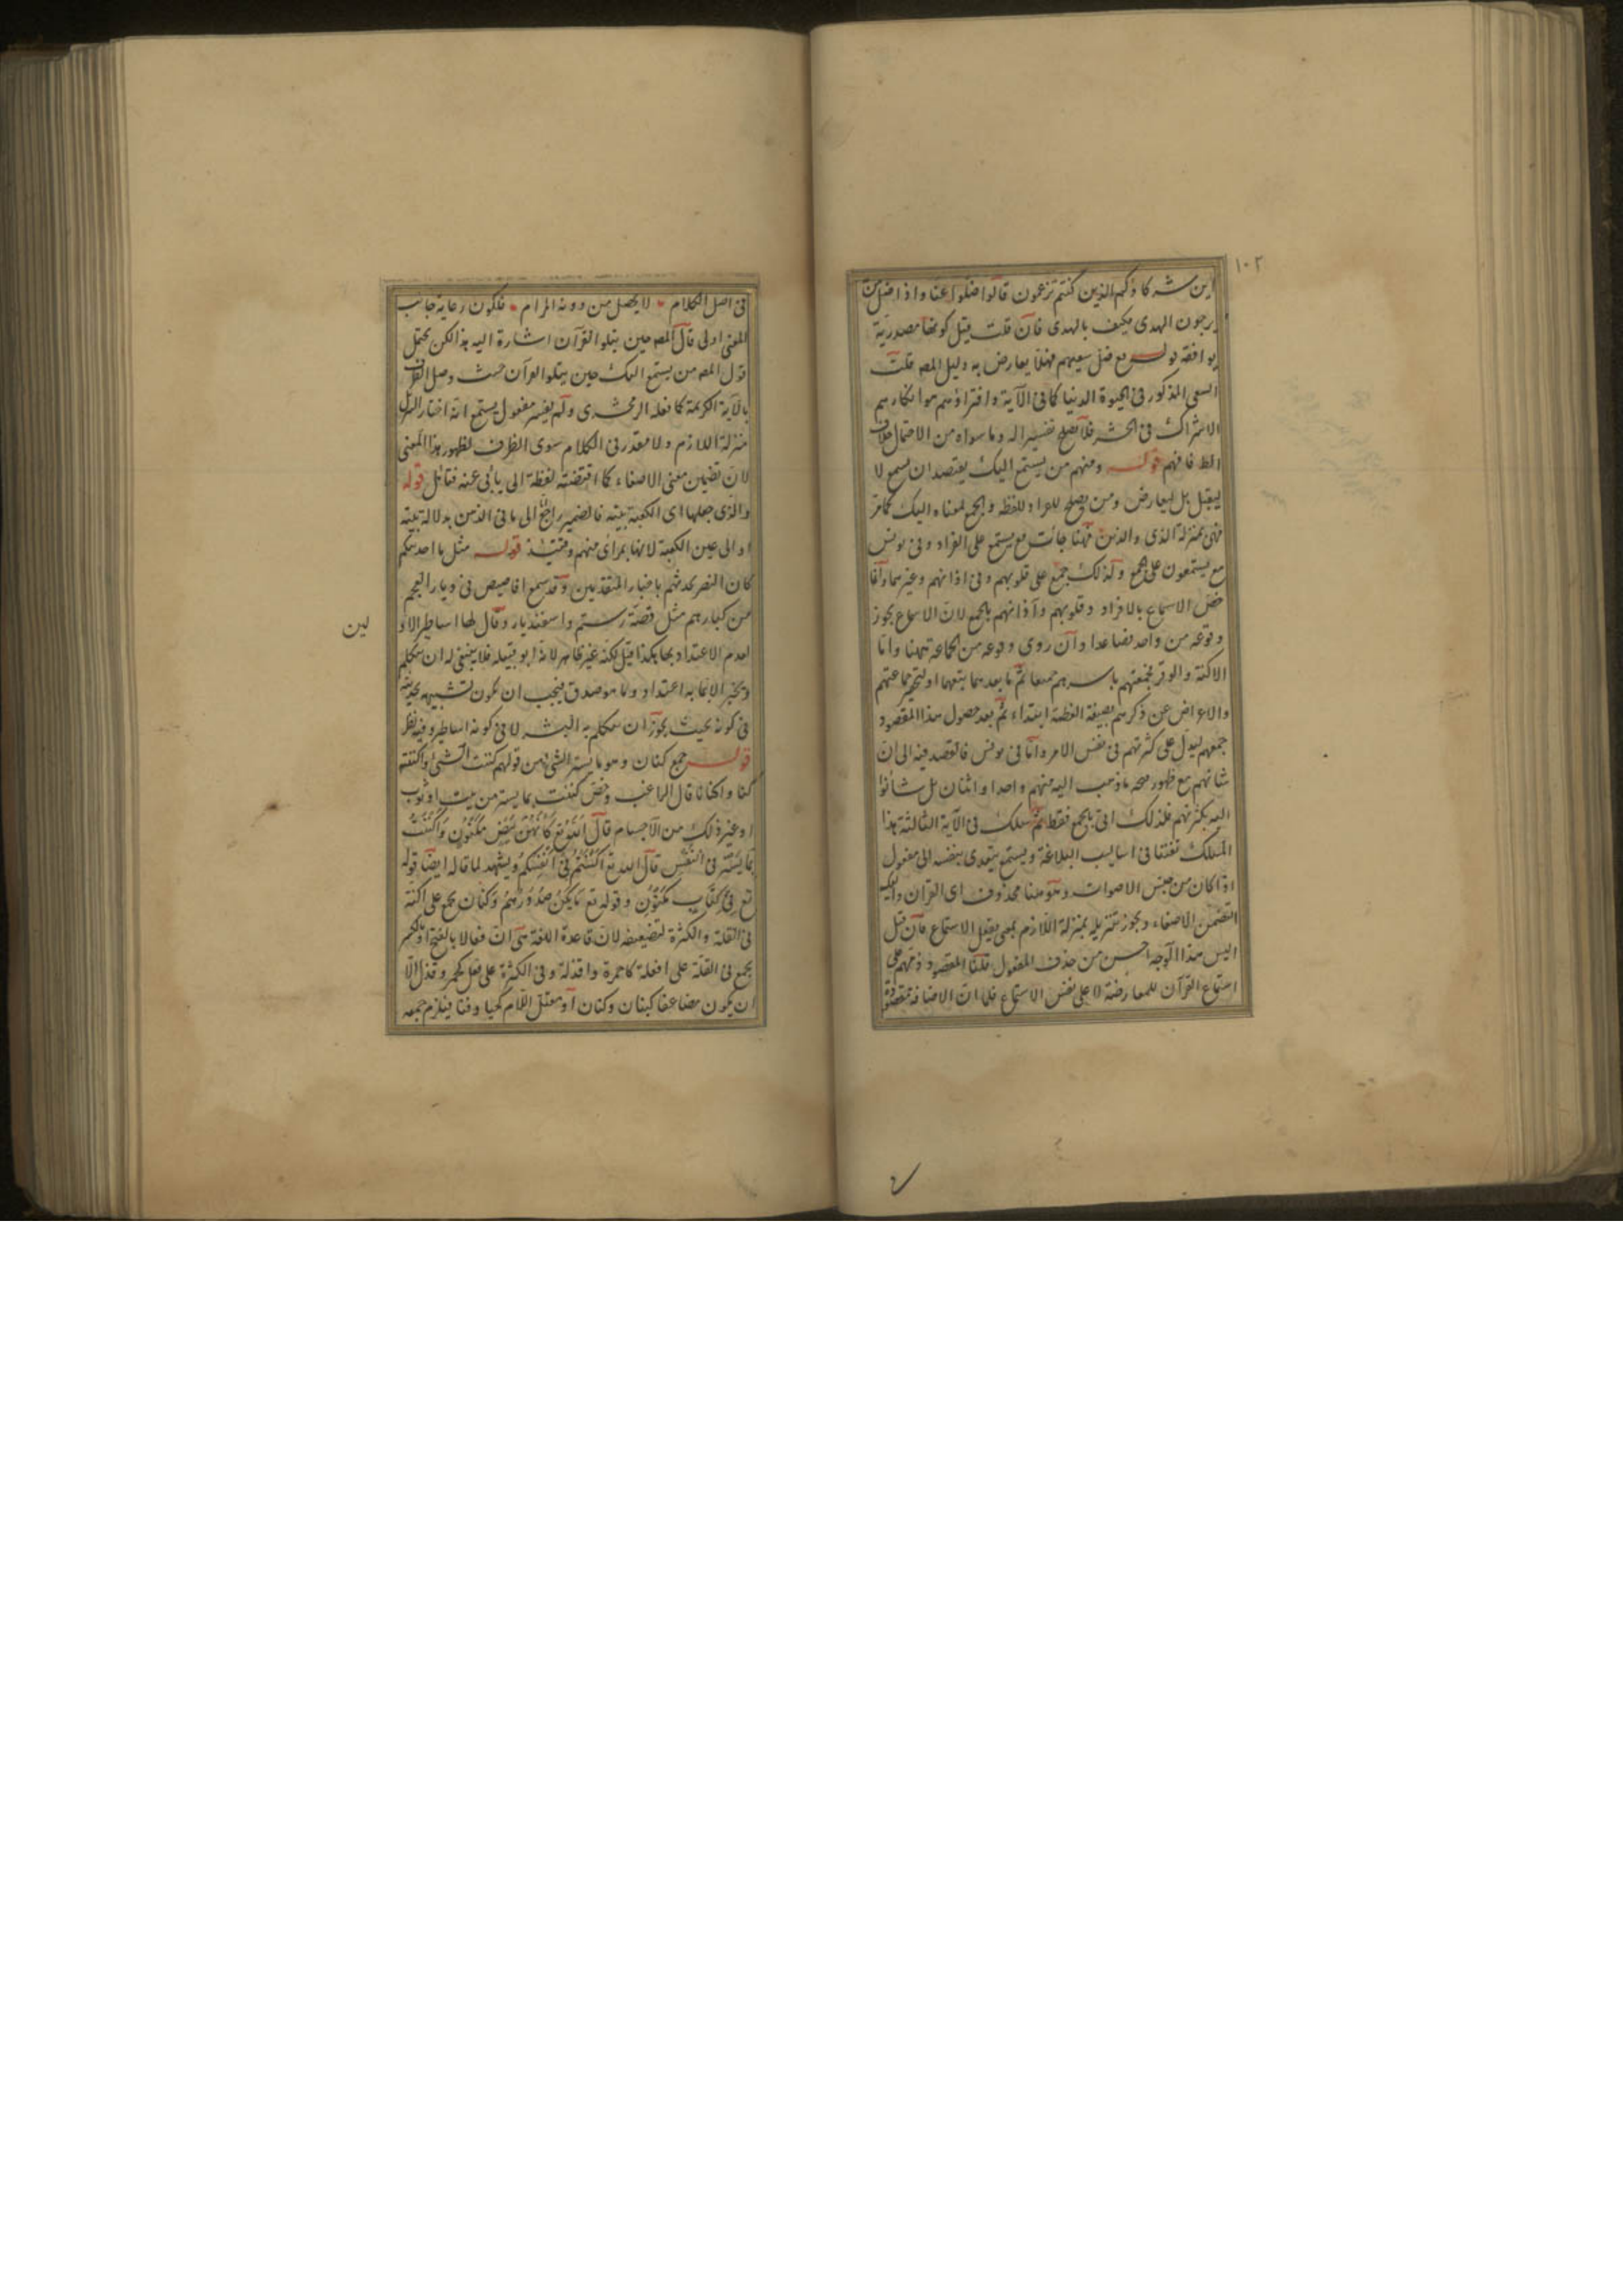 ١٠٢
اين شركاؤكم الذين كنتم تزعمون قالوا ضلوا عنا واذا ضل من
يرجون الهدى فكيف بالهدى فان قلت قيل كونها مصدرية
يوافقه قوله ضل سعيهم فهلا يعارض به دليل المص قلت
السعى المذكور فى الحيوة الدنيا كما فى الآية وافتراؤهم هو انكارهم
الاشراك فى الحشر فلا يصلح تفسيرا له وما سواه من الاحتمال خلاف
الظ فافهم قوله ومنهم من يستمع اليك يقصد ان يسمع لا
ليقبل بل ليعارض ومن يصلح للمراد للفظه والجمع لمعناه اليك كما مر
فهى بمنزلة الذى والذين فهنا جائت مع يستمع على افراد وفى يونس
مع يستمعون على الجمع وكذلك جمع على قلوبهم وفى اذانهم وغيرهما وانما
خص الاسماع بالافراد وقلوبهم وآذانهم بالجمع لان الاسماع يجوز
وقوعه من واحد فصاعدا وان روى وقوعه من الجماعة هنا واما
الاكنة والوقر فجمعتهم باسرهم جميعا ثم ما بعدهما يتبعهما
والاعراض عن ذكرهم بصيغة ابتداء ثم بعد حصول هذا المقصود
جمعهم ليدل على كثرتهم فى نفس الامر واما فى يونس فالقصد فيه الى ان
شانهم مع ظهور صحة ما ذهب اليه منهم واحد او اثنان بل
اليه بكثرتهم فلذلك اتى بالجمع فقط ثم سلك فى الآية الثالثة هذا
المسلك تفننا فى اساليب البلاغة ويستمع يتعدى بنفسه الى مفعول
اذا كان من جنس الاصوات وهو هنا محذوف اى القرآن واليك
لتضمن الاصغاء ويجوز تنزيله بمنزلة اللازم بمعنى يفعل الاستماع فان قيل
اليس هذا الوجه احسن من حذف المفعول قلنا المقصود ذمهم على
استماع القرآن للمعارضة لا على نفس الاستماع فلما ان الاضافة مقصودة
فى اصل الكلام لا يحصل من دونه المرام فلكون رعاية جانب
المعنى اولى قال المص حين يتلو القرآن اشارة اليه هذا لكن يحتمل
قول المص من يستمع اليك حين يتلو القرآن حيث وصل الظرف
بالآية الكريمة كما فعله الزمخشرى ولم يفسر مفعول يستمع انه اختار
منزلة اللازم ولا مقدر فى الكلام سوى الظرف لظهور هذا المعنى
لان تضمين معنى الاصغاء كما اقتضته لفظة الى يأبى عنه فتأمل قوله
والذى جعلها اى الكعبة بيته فالضمير راجع الى ما فى الذهن بدلالة بيته
او الى عين الكعبة لانها بمرأى منهم وقتئذ قوله مثل ما احدثكم
كان النضر يحدثهم باخبار المتقدمين وقد سمع اقاصيص فى ديار العجم
من كبارهم مثل قصة رستم واسفنديار وقال لها اساطير الاو
لين
لعدم الاعتداد بها هكذا قيل لكنه غير ظاهر لانه فلا ينبغى له ان يتكلم
الا بما به اعتداد وما هو صدق فيجب ان يكون تشبيهه بحديثه
فى كونه بحيث يجوز ان يتكلم به البشر لا فى كونه اساطير وفيه نظر
قوله جمع كنان وهو ما يستر الشئ من قولهم كننت الشئ واكننته
كنا واكنانا قال الراغب وخص كننت بما يستر من بيت او ثوب
او غير ذلك من الاجسام قال الله تع كَاَنَّهُنَّ بَيْضٌ مَكْنُونٌ واكننت
بما يستر فى النفس قال الله تع اَكْنَنْتُمْ فِى اَنْفُسِكُمْ ويشهد لما قاله ايضا قوله
تع فِى كِتَابٍ مَكْنُونٍ وقوله تع مَا تُكِنُّ صُدُورُهُمْ وكنان يجمع على اكنة
فى القلة والكثرة لتضعيفه لان قاعدة اللغة هى ان فعالا بالفتح او بالكسر
يجمع فى القلة على افعلة كاحمرة واقذلة وفى الكثرة على فعل كحمر وقذل الا
ان يكون مضاعفا كبنان وكنان او معتل اللام كخبا وفنا فيلزم جمعه